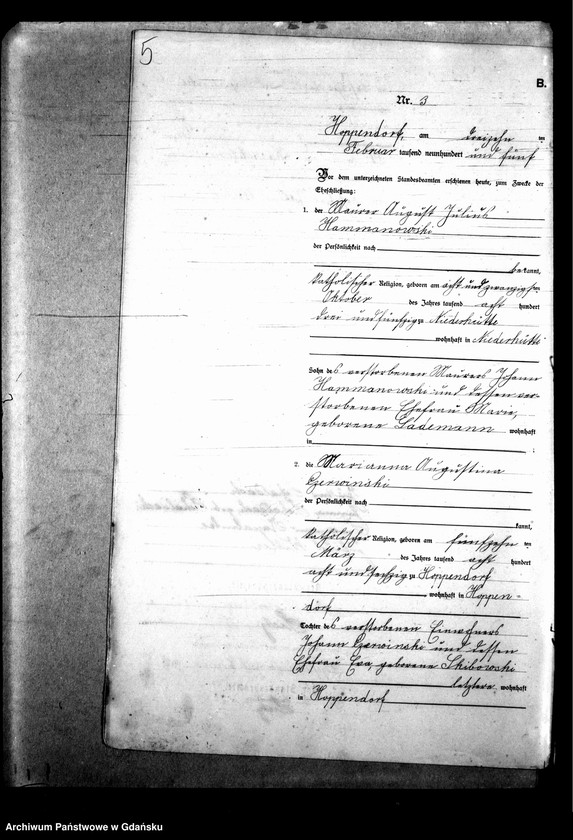 5
B.
Nr. 3
Hoppendorf, am dreizehn ten
Februar tausend neunhundert und fünf
Vor dem unterzeichneten Standesbeamten erschienen heute, zum Zwecke der
Eheschließung:
1. der Maurer August Julius
Hammanowski
der Persönlichkeit nach
bekannt,
katholischer Religion, geboren am acht und zwanzigsten
Oktober des Jahres tausend acht hundert
drei und fünfzig zu Niederhütte
wohnhaft in Niederhütte
Sohn des verstorbenen Maurers Johann
Hammanowski und dessen ver-
storbenen Ehefrau Marie,
geborene Lademann wohnhaft
in
2. die Marianna Augustina
Czerwinski
der Persönlichkeit nach
kannt,
katholischer Religion, geboren am fünfzehn ten
März des Jahres tausend acht hundert
acht und sechzig zu Hoppendorf
wohnhaft in Hoppen-
dorf
Tochter des verstorbenen Einwohners
Johann Czerwinski und dessen
Ehefrau Eva, geborene Skibowski
letztere wohnhaft
in Hoppendorf
Archiwum Państwowe w Gdańsku